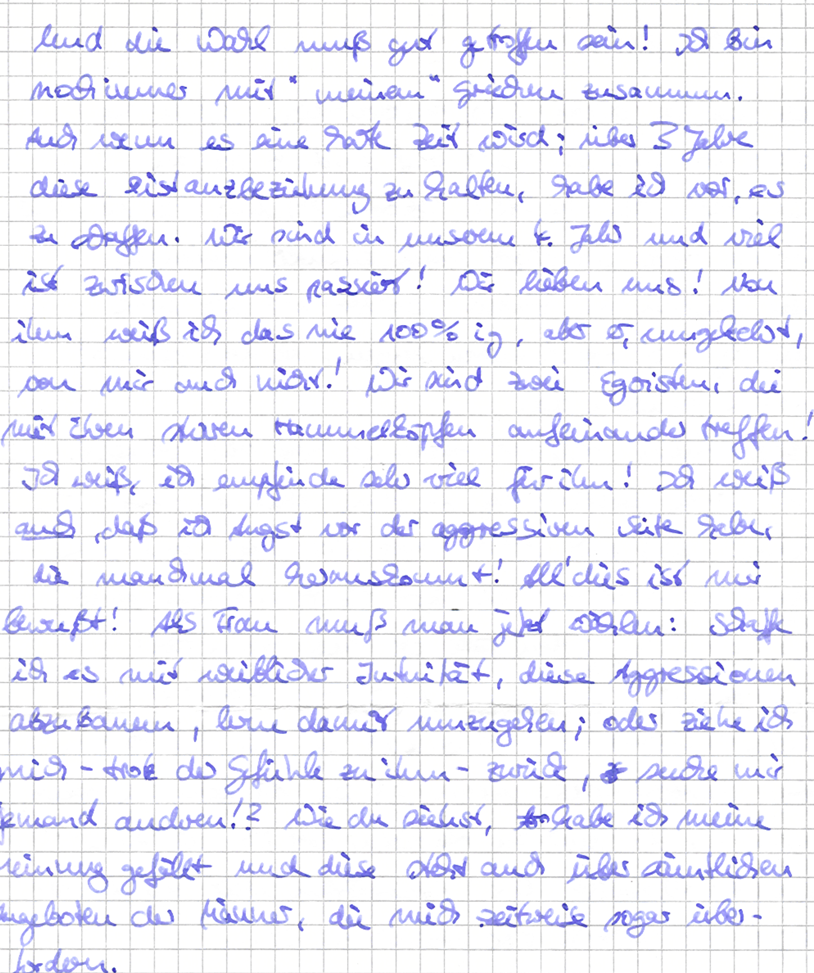 Und die Wahl muß gut getroffen sein! Ich bin
noch immer mit "meinem" Griechen zusammen.
Auch wenn es eine harte Zeit wird; über 3 Jahre
diese Distanzbeziehung zu halten, habe ich vor, es
zu schaffen. Wir sind in unserem 4. Jahr und viel
ist zwischen uns passiert! Wir lieben uns! Von
ihm weiß ich das nie 100%ig, aber er, umgekehrt,
von mir auch nicht! Wir sind zwei Egoisten, die
mit ihren sturen Hammelköpfen aufeinander treffen!
Ich weiß, ich empfinde sehr viel für ihn! Ich weiß
auch, daß ich Angst vor der aggressiven Seite habe,
die manchmal herauskommt! All' dies ist mir
bewußt! Als Frau muß man jetzt wählen: Schaffe
ich es mit weiblicher Intuität, diese Aggressionen
abzubauen, lerne damit umzugehen; oder ziehe ich
mich - trotz der Gefühle zu ihm - zurück, suche mir
jemand anderen!? Wie du siehst, habe ich meine
Meinung gefällt und diese steht auch über sämtlichen
Angeboten der Männer, die mich zeitweise sogar über-
fordern.